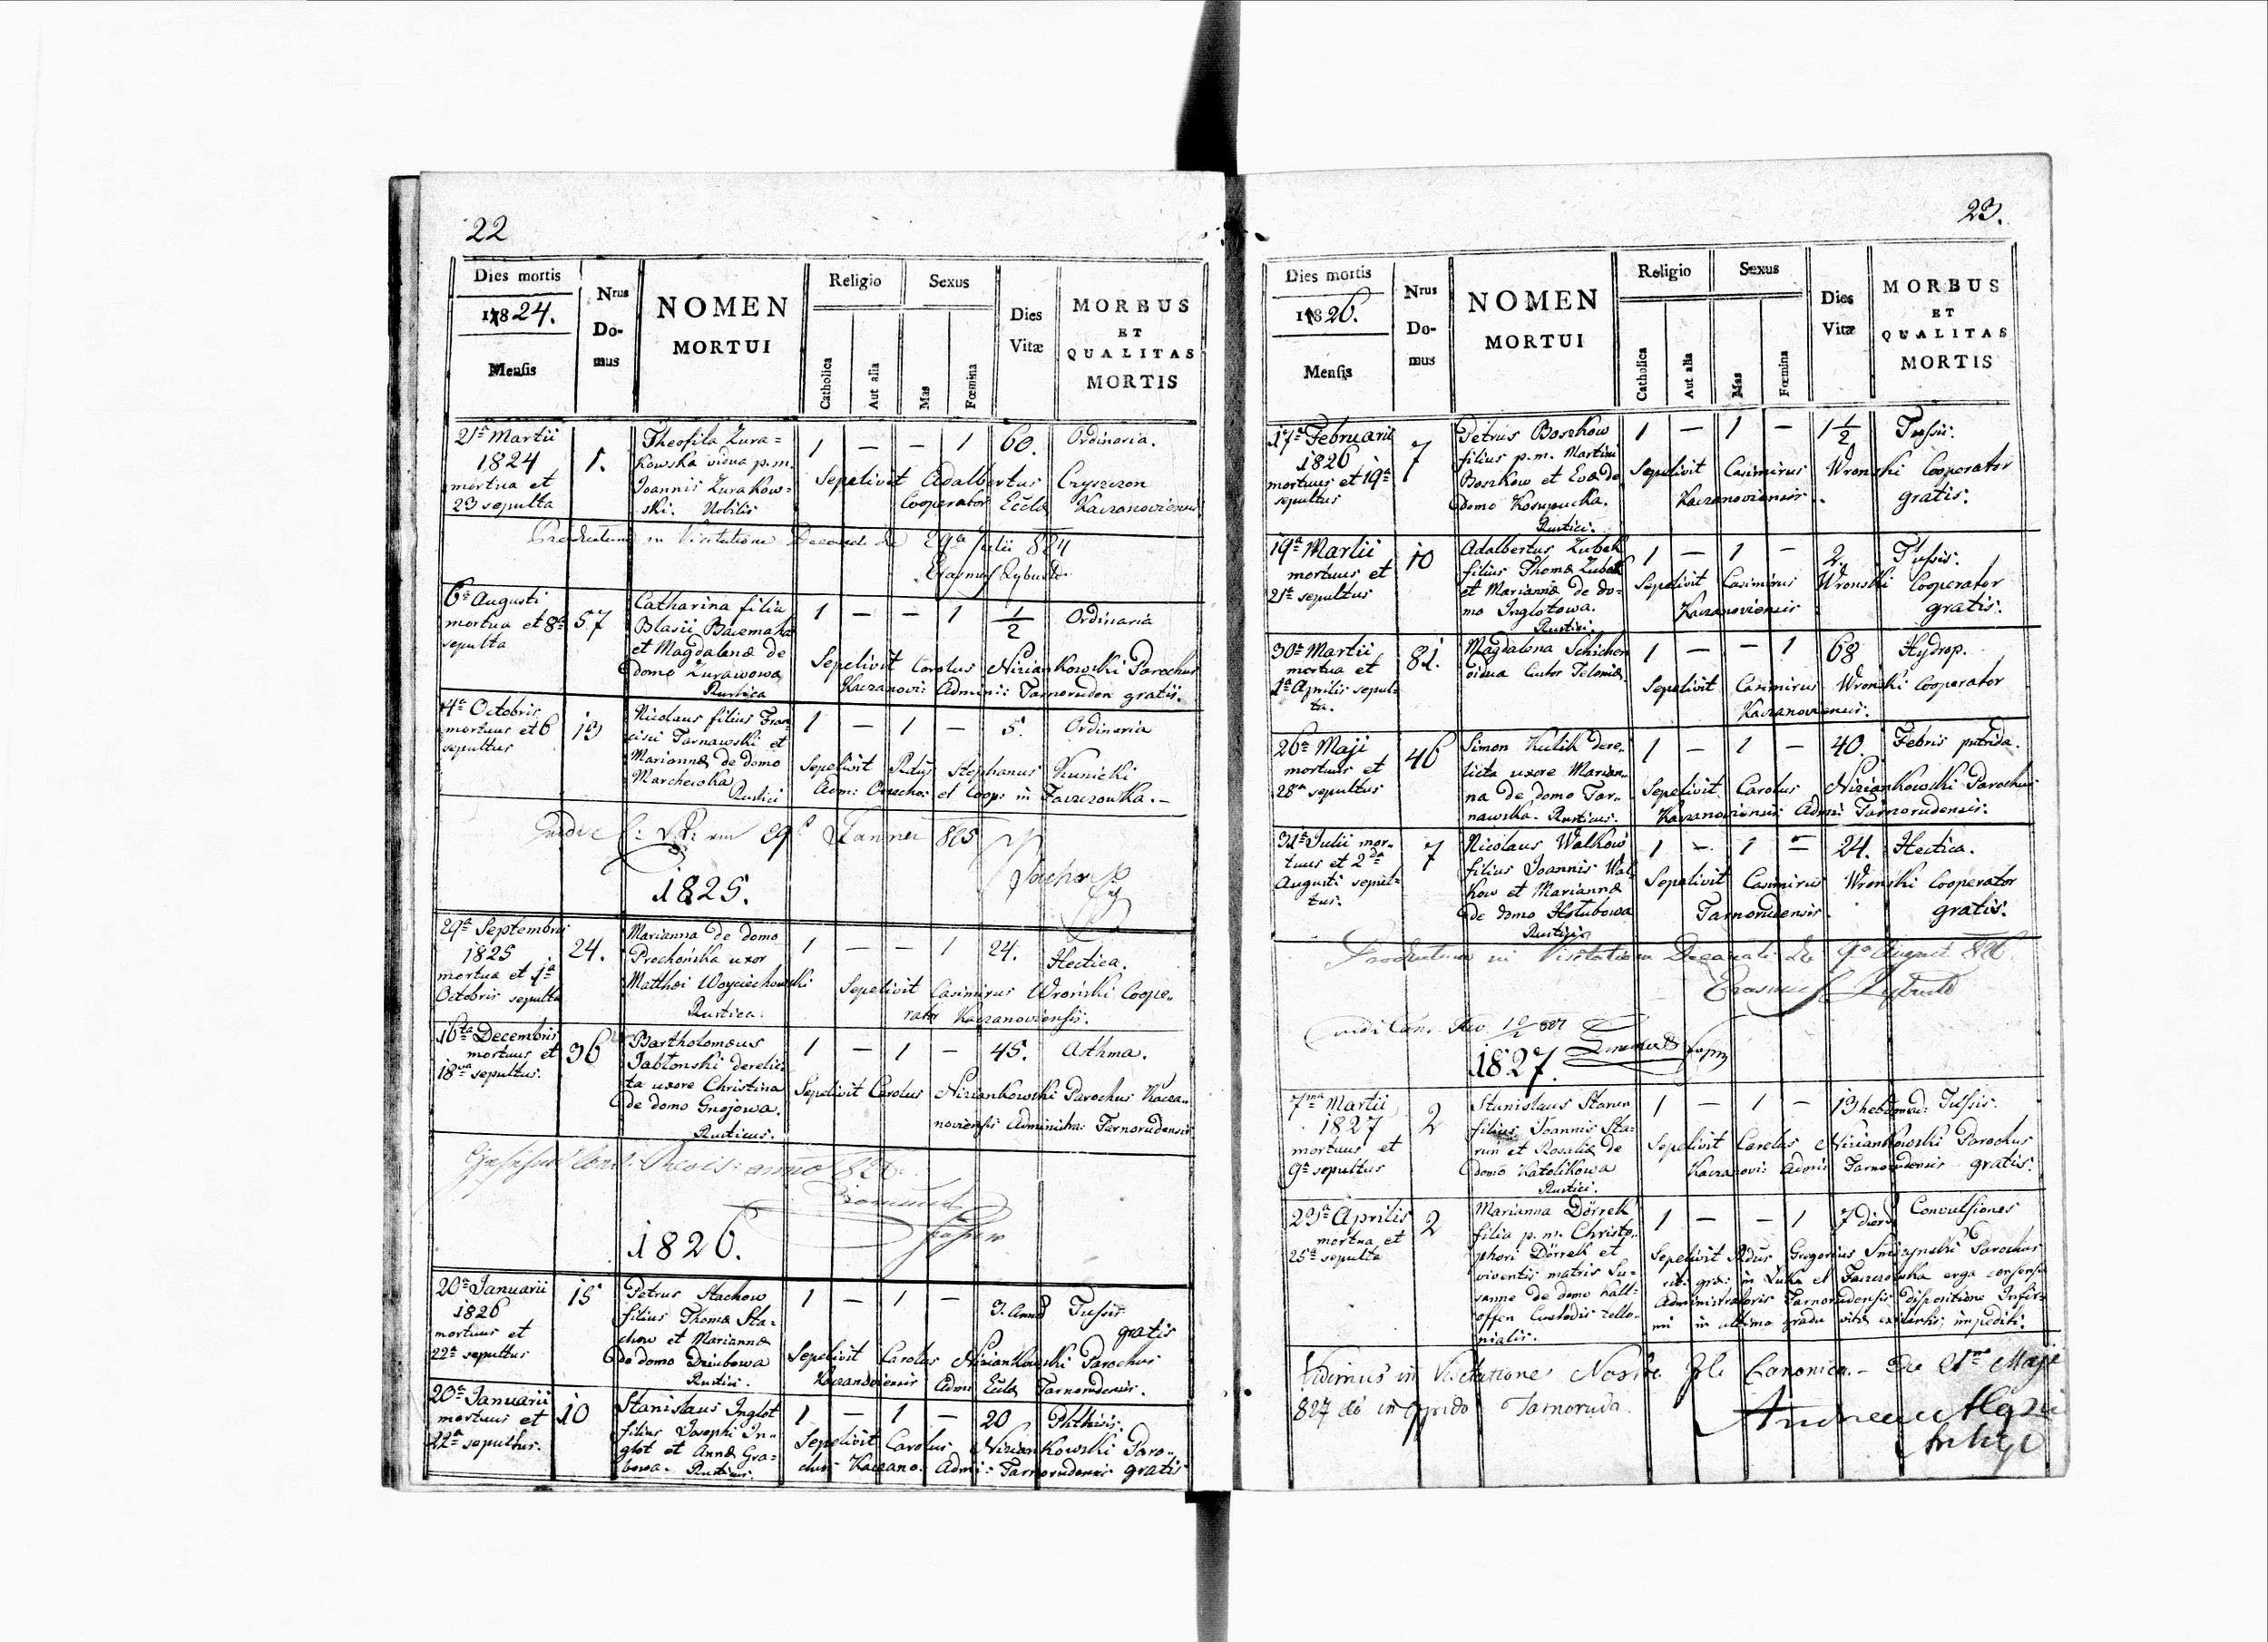 22
Dies mortis
1824.
Mensis
Nrus Do-mus
NOMEN
MORTUI
Religio
Catholica
Aut alia
Sexus
Mas
Fœmina
Dies
Vitæ
MORBUS
ET
QUALITAS
MORTIS
21a Martii
1824
mortua et
23 sepulta
1.
Theofila Zura=
kowska vidua p.m.
Joannis Zurakow=
ski. Nobilis
1 — — 1 60. Ordinaria.
Sepelivit Adalbertus Czyszczon
Cooperator Eccla Kaczanoviensis
in Visitatione 29a Julii 824
6a Augusti
mortua et 8a
sepulta
57
Catharina filia
Blasii Baczmaha
et Magdalenæ de
domo Zurawowa
Rustica
1 — — 1 1/2 Ordinaria
Sepelivit Carolus Nizankowski Parochus
Kaczanovi: Admini: Tarnoruden gratis.
4a Octobris
mortuus et 6
sepultus
13
Nicolaus filius Fran=
cisci Tarnawski et
Mariannæ de domo
Marchewka
Rustici
1 — 1 — 5. Ordinaria
Sepelivit Rdus Stephanus Kunicki
Adm: et Coop: in Faszczowka. —
1825.
29a Septembris
1825
mortua et 1a
Octobris sepulta
24.
Marianna de domo
Prochońska uxor
Matthæi Woyciechowski
Rustica.
1 — — 1 24. Hectica.
Sepelivit Casimirus Wroński Coope=
rator Kaczanoviensis.
16ta Decembris
mortuus et
18va sepultus.
36
Bartholomæus
Jabłonski derelic=
ta uxore Christina
de domo Gnojowa.
Rusticus.
1 — 1 — 45. Asthma.
Sepelivit Carolus Nizankowski Parochus Kacza=
noviensis Administra: Tarnorudensis
1826.
20a Januarii
1826
mortuus et
22a sepultus
15
Petrus Stachow
filius Thomæ Sta=
chow et Mariannæ
de domo Dziubowa
Rustici.
1 — 1 — 3. Anno Tussis
gratis
Sepelivit Carolus Nizankowski Parochus
Kaczanoviensis Admi Eccla Tarnorudensis.
20a Januarii
mortuus et
22a sepultus.
10
Stanislaus Inglot
filius Josephi In=
glot et Annæ Gra=
bowa. Rusticus.
1 — 1 — 20 Phthisis.
Sepelivit Carolus Nizankowski Paro=
chus Kaczano: Admi: Tarnorudensis gratis
23.
Dies mortis
1826.
Mensis
Nrus Do-mus
NOMEN
MORTUI
Religio
Catholica
Aut alia
Sexus
Mas
Fœmina
Dies
Vitæ
MORBUS
ET
QUALITAS
MORTIS
17a Februarii
1826
mortuus et 19a
sepultus
7
Petrus Boszkow
filius p.m. Martini
Boszkow et Evæ de
domo
Rustici.
1 — 1 — 1 1/2 Tussis.
Sepelivit Casimirus Wronski Cooperator
Kaczanoviensis. gratis.
19a Martii
mortuus et
21a sepultus
10
Adalbertus Zubek
filius Thomæ Zubek
et Mariannæ de do=
mo Inglotowa.
Rustici.
1 — 1 — 2. Tussis.
Sepelivit Casimirus Wronski Cooperator
Kaczanoviensis gratis.
30a Martii
mortua et
1a Aprilis sepul=
ta.
81.
Magdalena Schichon
vidua Custor Teloniæ.
1 — — 1 68 Hydrop.
Sepelivit Casimirus Wronski Cooperator
Kaczanoviensis.
26a Maji
mortuus et
28va sepultus
46
Simon Kulik dere=
licta uxore Marian=
na de domo Tar=
nawska. Rusticus.
1 — 1 — 40. Febris putrida.
Sepelivit Carolus Nizankowski Parochus
Kaczanoviensis Admi: Tarnorudensis.
31a Julii mor=
tuus et 2da
Augusti sepul=
tus.
7
Nicolaus Walkow
filius Joannis Wal
kow et Mariannæ
de domo Hołubowa
Rustici
1 — 1 — 24. Hectica.
Sepelivit Casimirus Wronski Cooperator
Tarnorudensis. gratis.
Productum in Visitatione Decanali de 9a August 826
1827.
7ma Martii
1827
mortuus et
9a sepultus
2
Stanislaus Starun
filius Joannis Sta=
run et Rosaliæ de
domo Katolikowa
Rustici.
1 — 1 — 13 hebdomad: Tussis.
Sepelivit Carolus Nizankowski Parochus
Kaczanovi: Admi: Tarnorudensis gratis.
23a Aprilis
mortua et
25a sepulta
2
Marianna Dörrek
filia p.m. Christo=
phori Dörrek et
viventis matris Su=
sanne de domo Hall=
offen Custodis tello=
nialis.
1 — — 1 7 dierū Convulsiones
Sepelivit Rdus Gregorius Parochus
rit: græ: in Łuka et Faszczowka erga consensu
Administratoris Tarnorudensis dispositione Infir=
mi in ultimo gradu vitæ impediti.
Vidimus in Visitatione Nostra Canonica. — die 21ma Maji
827 in oppido Tarnoruda.
Andreas